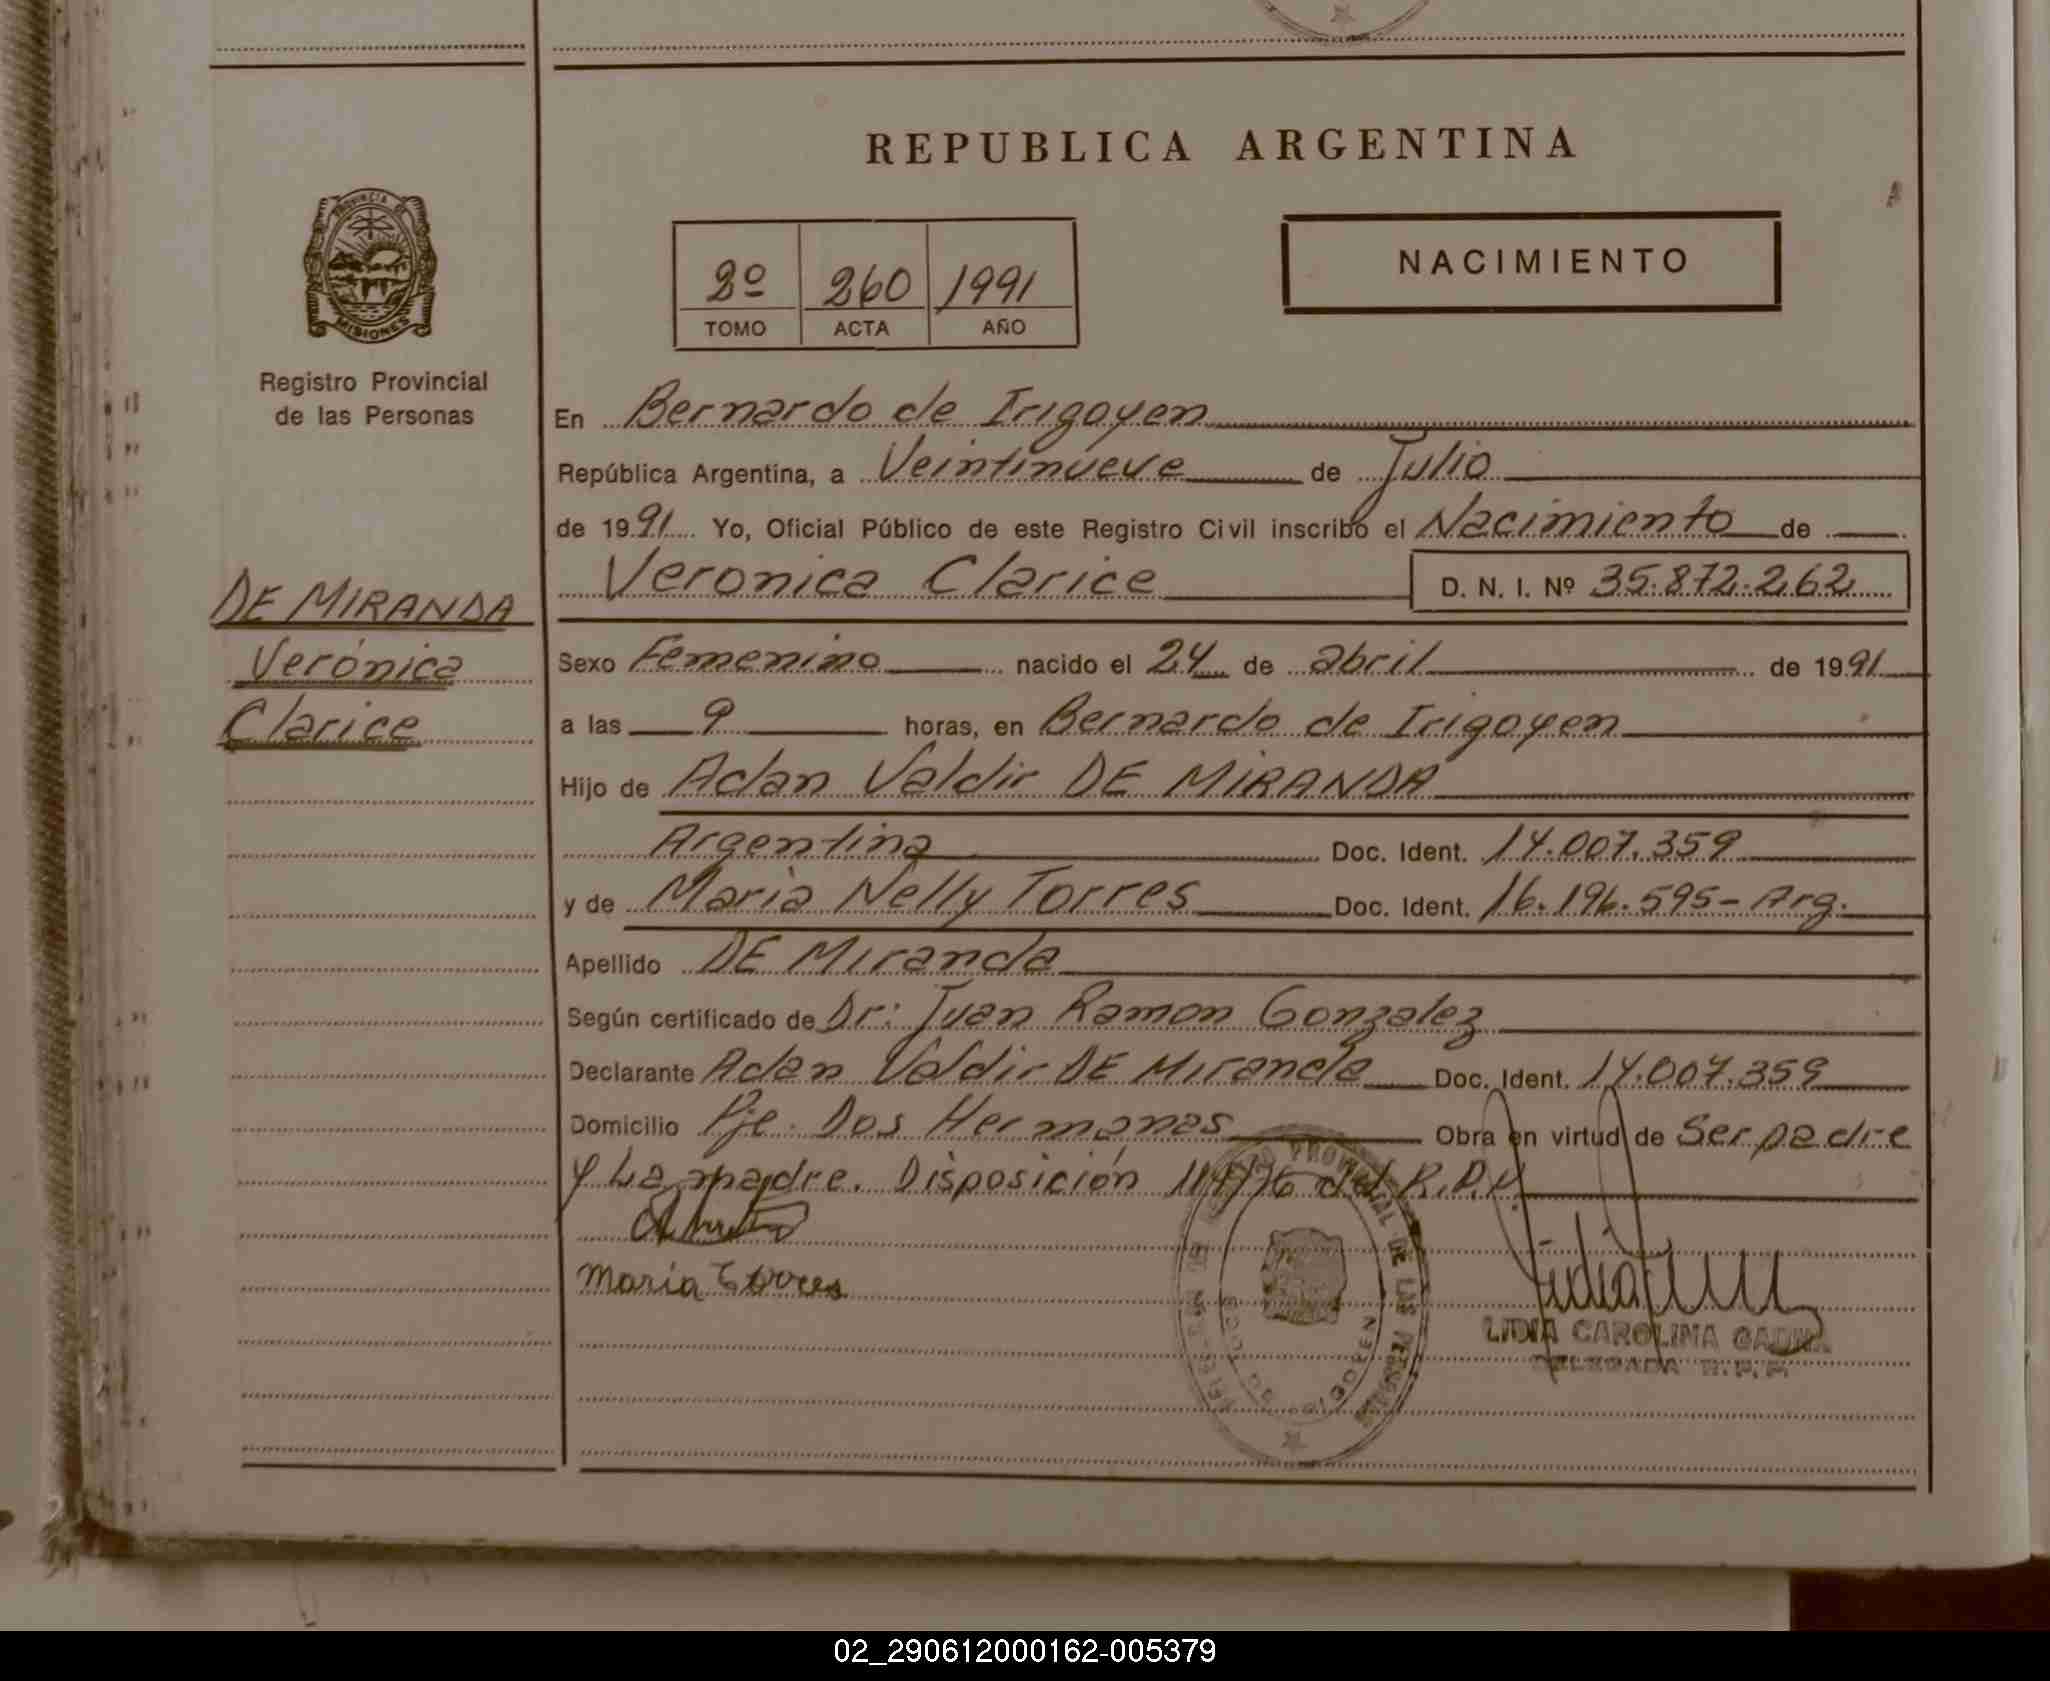 REPUBLICA ARGENTINA
PROVINCIA DE
MISIONES
Registro Provincial
de las Personas
2º 260 1991
TOMO ACTA AÑO
NACIMIENTO
En Bernardo de Irigoyen
República Argentina, a Veintinueve de Julio
de 1991 Yo, Oficial Público de este Registro Civil inscribo el Nacimiento de
Veronica Clarice D. N. I. Nº 35.872.262
DE MIRANDA
Verónica
Clarice
Sexo Femenino nacido el 24 de abril de 1991
a las 9 horas, en Bernardo de Irigoyen
Hijo de Adan Valdir DE MIRANDA
Argentina Doc. Ident. 14.007.359
y de Maria Nelly Torres Doc. Ident. 16.196.595- Arg.
Apellido DE Miranda
Según certificado de Dr: Juan Ramon Gonzalez
Declarante Adan Valdir DE Miranda Doc. Ident. 14.007.359
Domicilio Pje. Dos Hermanas Obra en virtud de Ser padre
y La madre. Disposición 114/76 del R.P.P.
Maria Torres
PROVINCIAL DE LAS PERSONAS
LIDIA CAROLINA
DELEGADA R.P.P.
02_290612000162-005379